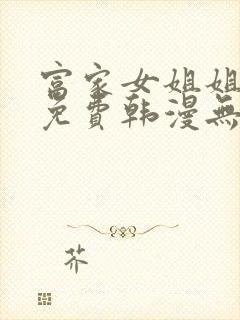 富家女姐姐
免費韩漫無
芥